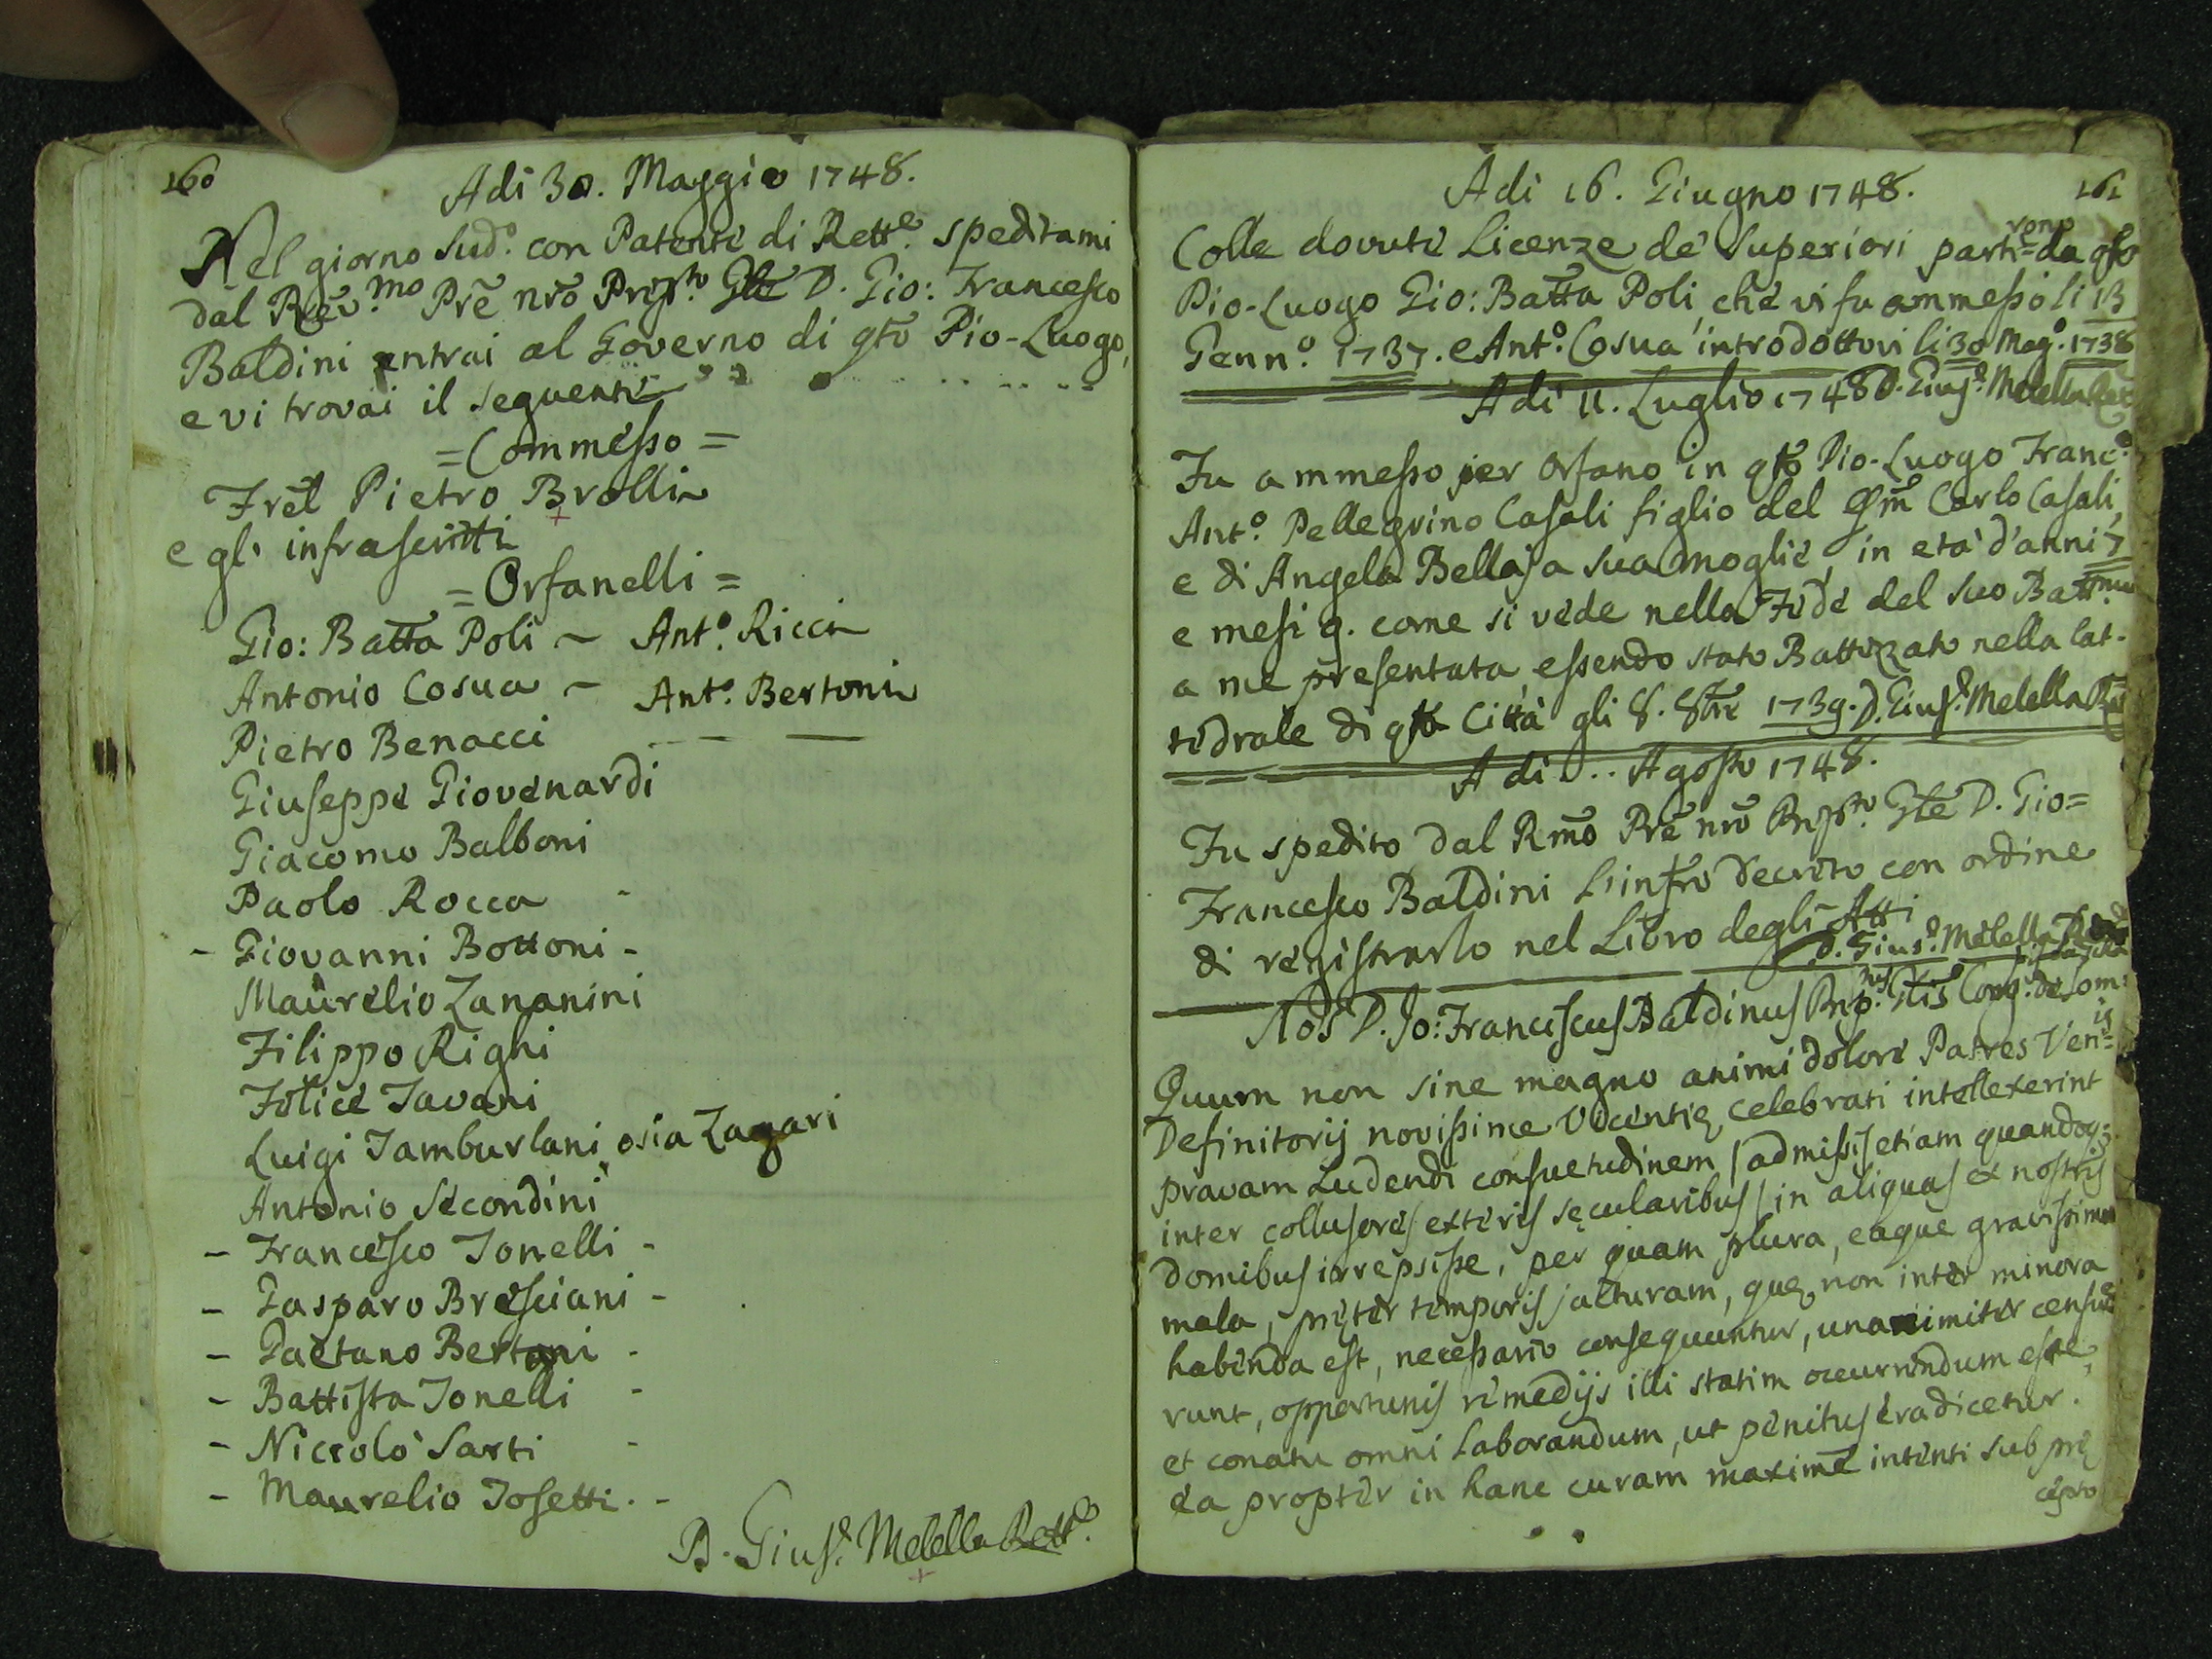 160
Adi 30. Maggio 1748.
Nel giorno Sud.º con Patente di Rett.e speditami
dal Rev.mo Prē nrō Prep.to Gle D. Gio: Francesco
Baldini entrai al Governo di qto Pio-Luogo,
e vi trovai il seguente
=Commesso=
Frēl Pietro Brolli
e gl' infrascritti
=Orfanelli=
Gio: Batta Poli ~ Ant.º Ricci
Antonio Cosua ~ Ant.º Bertoni
Pietro Benacci
Giuseppe Giovenardi
Giacomo Balboni
Paolo Rocca -
- Giovanni Bottoni -
Maurelio Zananini
Filippo Righi
Felice Tavani
Luigi Tamburlani osia Zagari
Antonio Secondini
- Francesco Tonelli -
- Gasparo Bresciani -
- Gaetano Bertoni -
- Battista Tonelli -
- Niccolò Sarti -
- Maurelio Tosetti. -
D. Gius.e Melella Rett.e
161
Adi 16. Giugno 1748.
Colle dovute Licenze de' Superiori parti=rono da qto
Pio-Luogo Gio: Batta Poli, che vi fu ammesso li 13
Genn.º 1737. e Ant.º Cosua introdottovi li 30 Mag.º 1738
D. Gius.e Melella
Adi 11. Luglio 1748
Fu ammesso per Orfano in qto Pio-Luogo Franc.º
Ant.º Pellegrino Casali figlio del qm Carlo Casali,
e di Angela Bellasa sua moglie, in età d'anni 7
e mesi 9. come si vede nella Fede del suo Batt.mo
a me presentata, essendo stato Battezzato nella Cat-
tedrale di qta Città gli 8. 8bre 1739. D. Gius.e Melella
Adi ... Agosto 1748.
Fu spedito dal Rmō Prē nrō Prep.to Gle D. Gio=
Francesco Baldini l'infrō Decreto con ordine
di registrarlo nel Libro degli Atti
D. Gius.e Melella
Nos D. Jo: Franciscus Baldinus Prep.tus Glis Cong. de Som:
Quum non sine magno animi dolore Patres Ven=
Definitorij novissime Vicentię celebrati intellexerint
pravam Ludendi consuetudinem / admissis etiam quandoq;
inter collusores exteris sęcularibus / in aliquas ex nostris
domibus irrepsisse, per quam plura, eaque gravissima
mala, pręter temporis jacturam, quę non inter minora
habenda est, necessario consequuntur, unanimiter censue
runt, opportunis remedijs illi statim occurrendum esse,
et conatu omni laborandum, ut penitus eradicetur.
ea propter in hanc curam maxime intenti sub prę
cepto